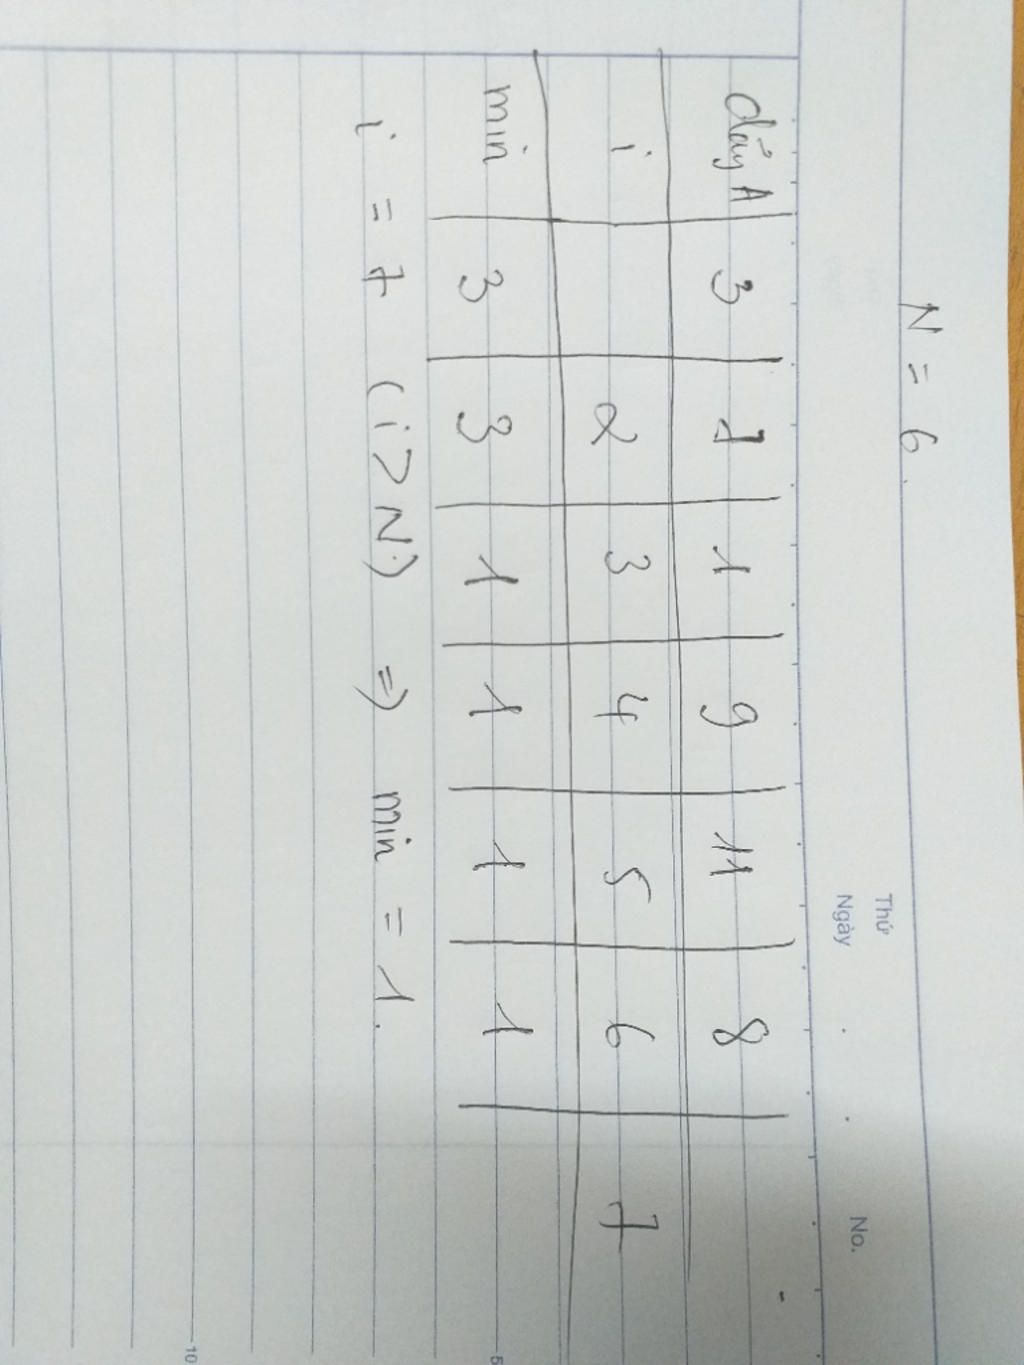 N = 6.
Thứ
Ngày . . No.
dãy A 3 7 1 9 11 8
i 2 3 4 5 6 7
min 3 3 1 1 1 1
5
i = 7 (i > N) => min = 1.
10